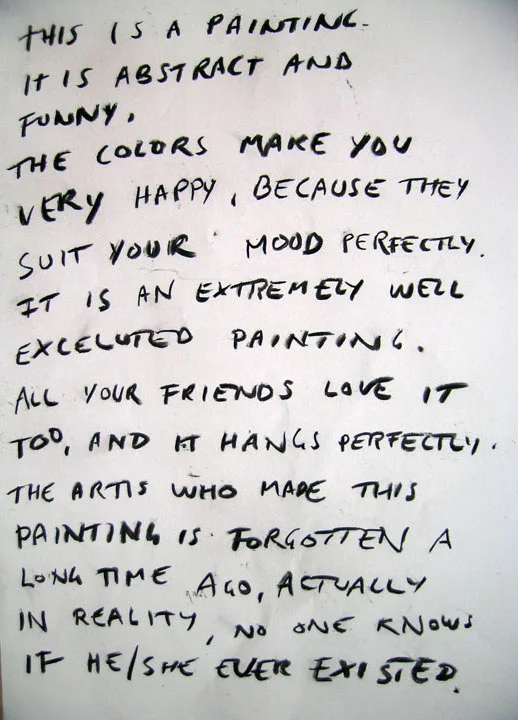 THIS IS A PAINTING.
IT IS ABSTRACT AND
FUNNY.
THE COLORS MAKE YOU
VERY HAPPY, BECAUSE THEY
SUIT YOUR MOOD PERFECTLY.
IT IS AN EXTREMELY WELL
EXCELUTED PAINTING.
ALL YOUR FRIENDS LOVE IT
TOO, AND IT HANGS PERFECTLY.
THE ARTIS WHO MADE THIS
PAINTING IS FORGOTTEN A
LONG TIME AGO, ACTUALLY
IN REALITY, NO ONE KNOWS
IF HE/SHE EVER EXISTED.